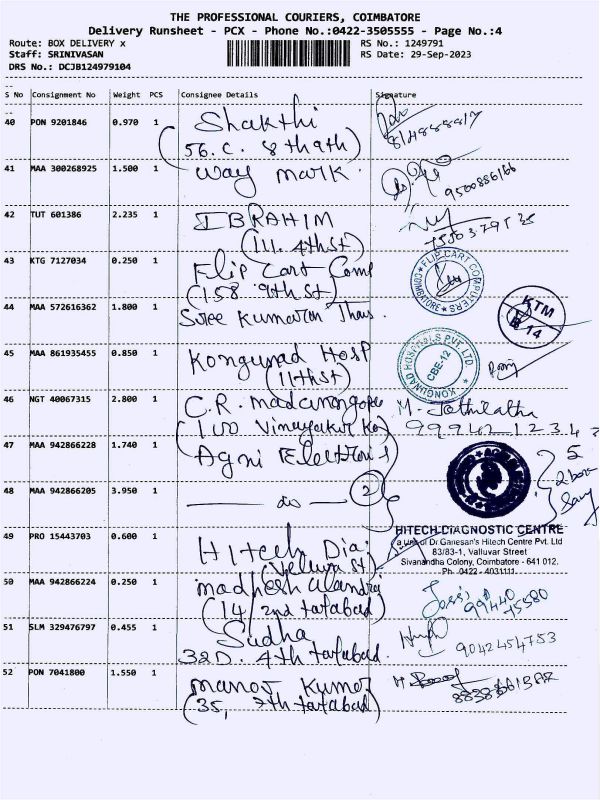 THE PROFESSIONAL COURIERS, COIMBATORE
Delivery Runsheet - PCX - Phone No.:0422-3505555 - Page No.:4
Route: BOX DELIVERY x
RS No.: 1249791
Staff: SRINIVASAN
RS Date: 29-Sep-2023
DRS No.: DCJB124979104
S No Consignment No Weight PCS Consignee Details Signature
40 PON 9201846 0.970 1 Shakthi
(56. C. 8th
41 MAA 300268925 1.500 1 Way Mark.
9500886166
42 TUT 601386 2.235 1 IBRAHIM
(111. 4th st)
43 KTG 7127034 0.250 1 Flip Cart Comp
(158 9th st)
FLIP CART COMPUTERS
COIMBATORE
44 MAA 572616362 1.800 1 Sree Kumaran
KTM
14
45 MAA 861935455 0.850 1 Kongunad Hosp
(11th st)
KONGUNAD HOSPITALS PVT. LTD.
CBE-12
46 NGT 40067315 2.800 1 C.R.
M. Jothilatha
(100
99942 12343
47 MAA 942866228 1.740 1 Agni
5
2 box
48 MAA 942866205 3.950 1 do 2
49 PRO 15443703 0.600 1 Hitech Dia
HITECH DIAGNOSTIC CENTRE
a unit of Dr.Ganesan's Hitech Centre Pvt. Ltd
83/83-1, Valluvar Street
Sivanandha Colony, Coimbatore - 641 012.
Ph: 0422 - 4031111
50 MAA 942866224 0.250 1 madhesh
(14, 2nd tatabad)
99440
75580
51 SLM 329476797 0.455 1 Sudha
32D. 4th tatabad.
9042454753
52 PON 7041800 1.550 1 Manoj Kumar
(35, 7th tatabad)